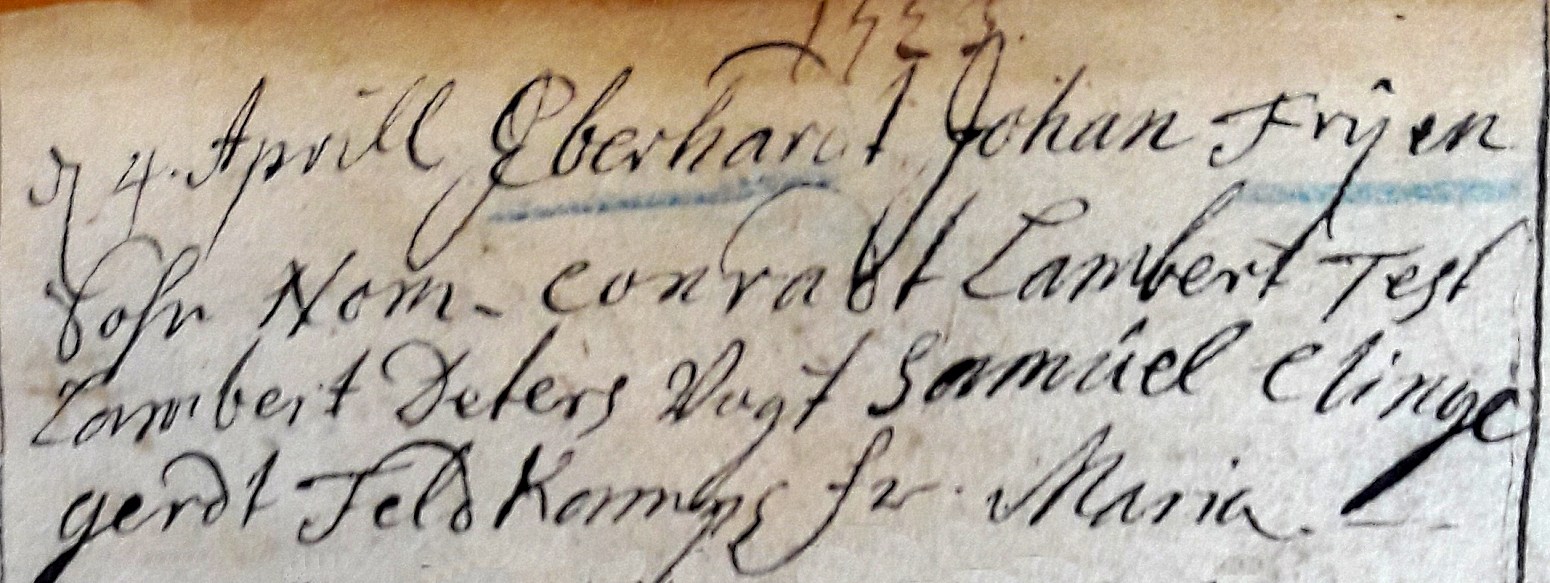 1723.
d 4. Aprill Eberhardt Johan Frÿen
Sohn Nom. Conradt Lambert Test
Lambert Deters Vogt Samúel Clinge
gerdt Feld Kamps fr. Maria.